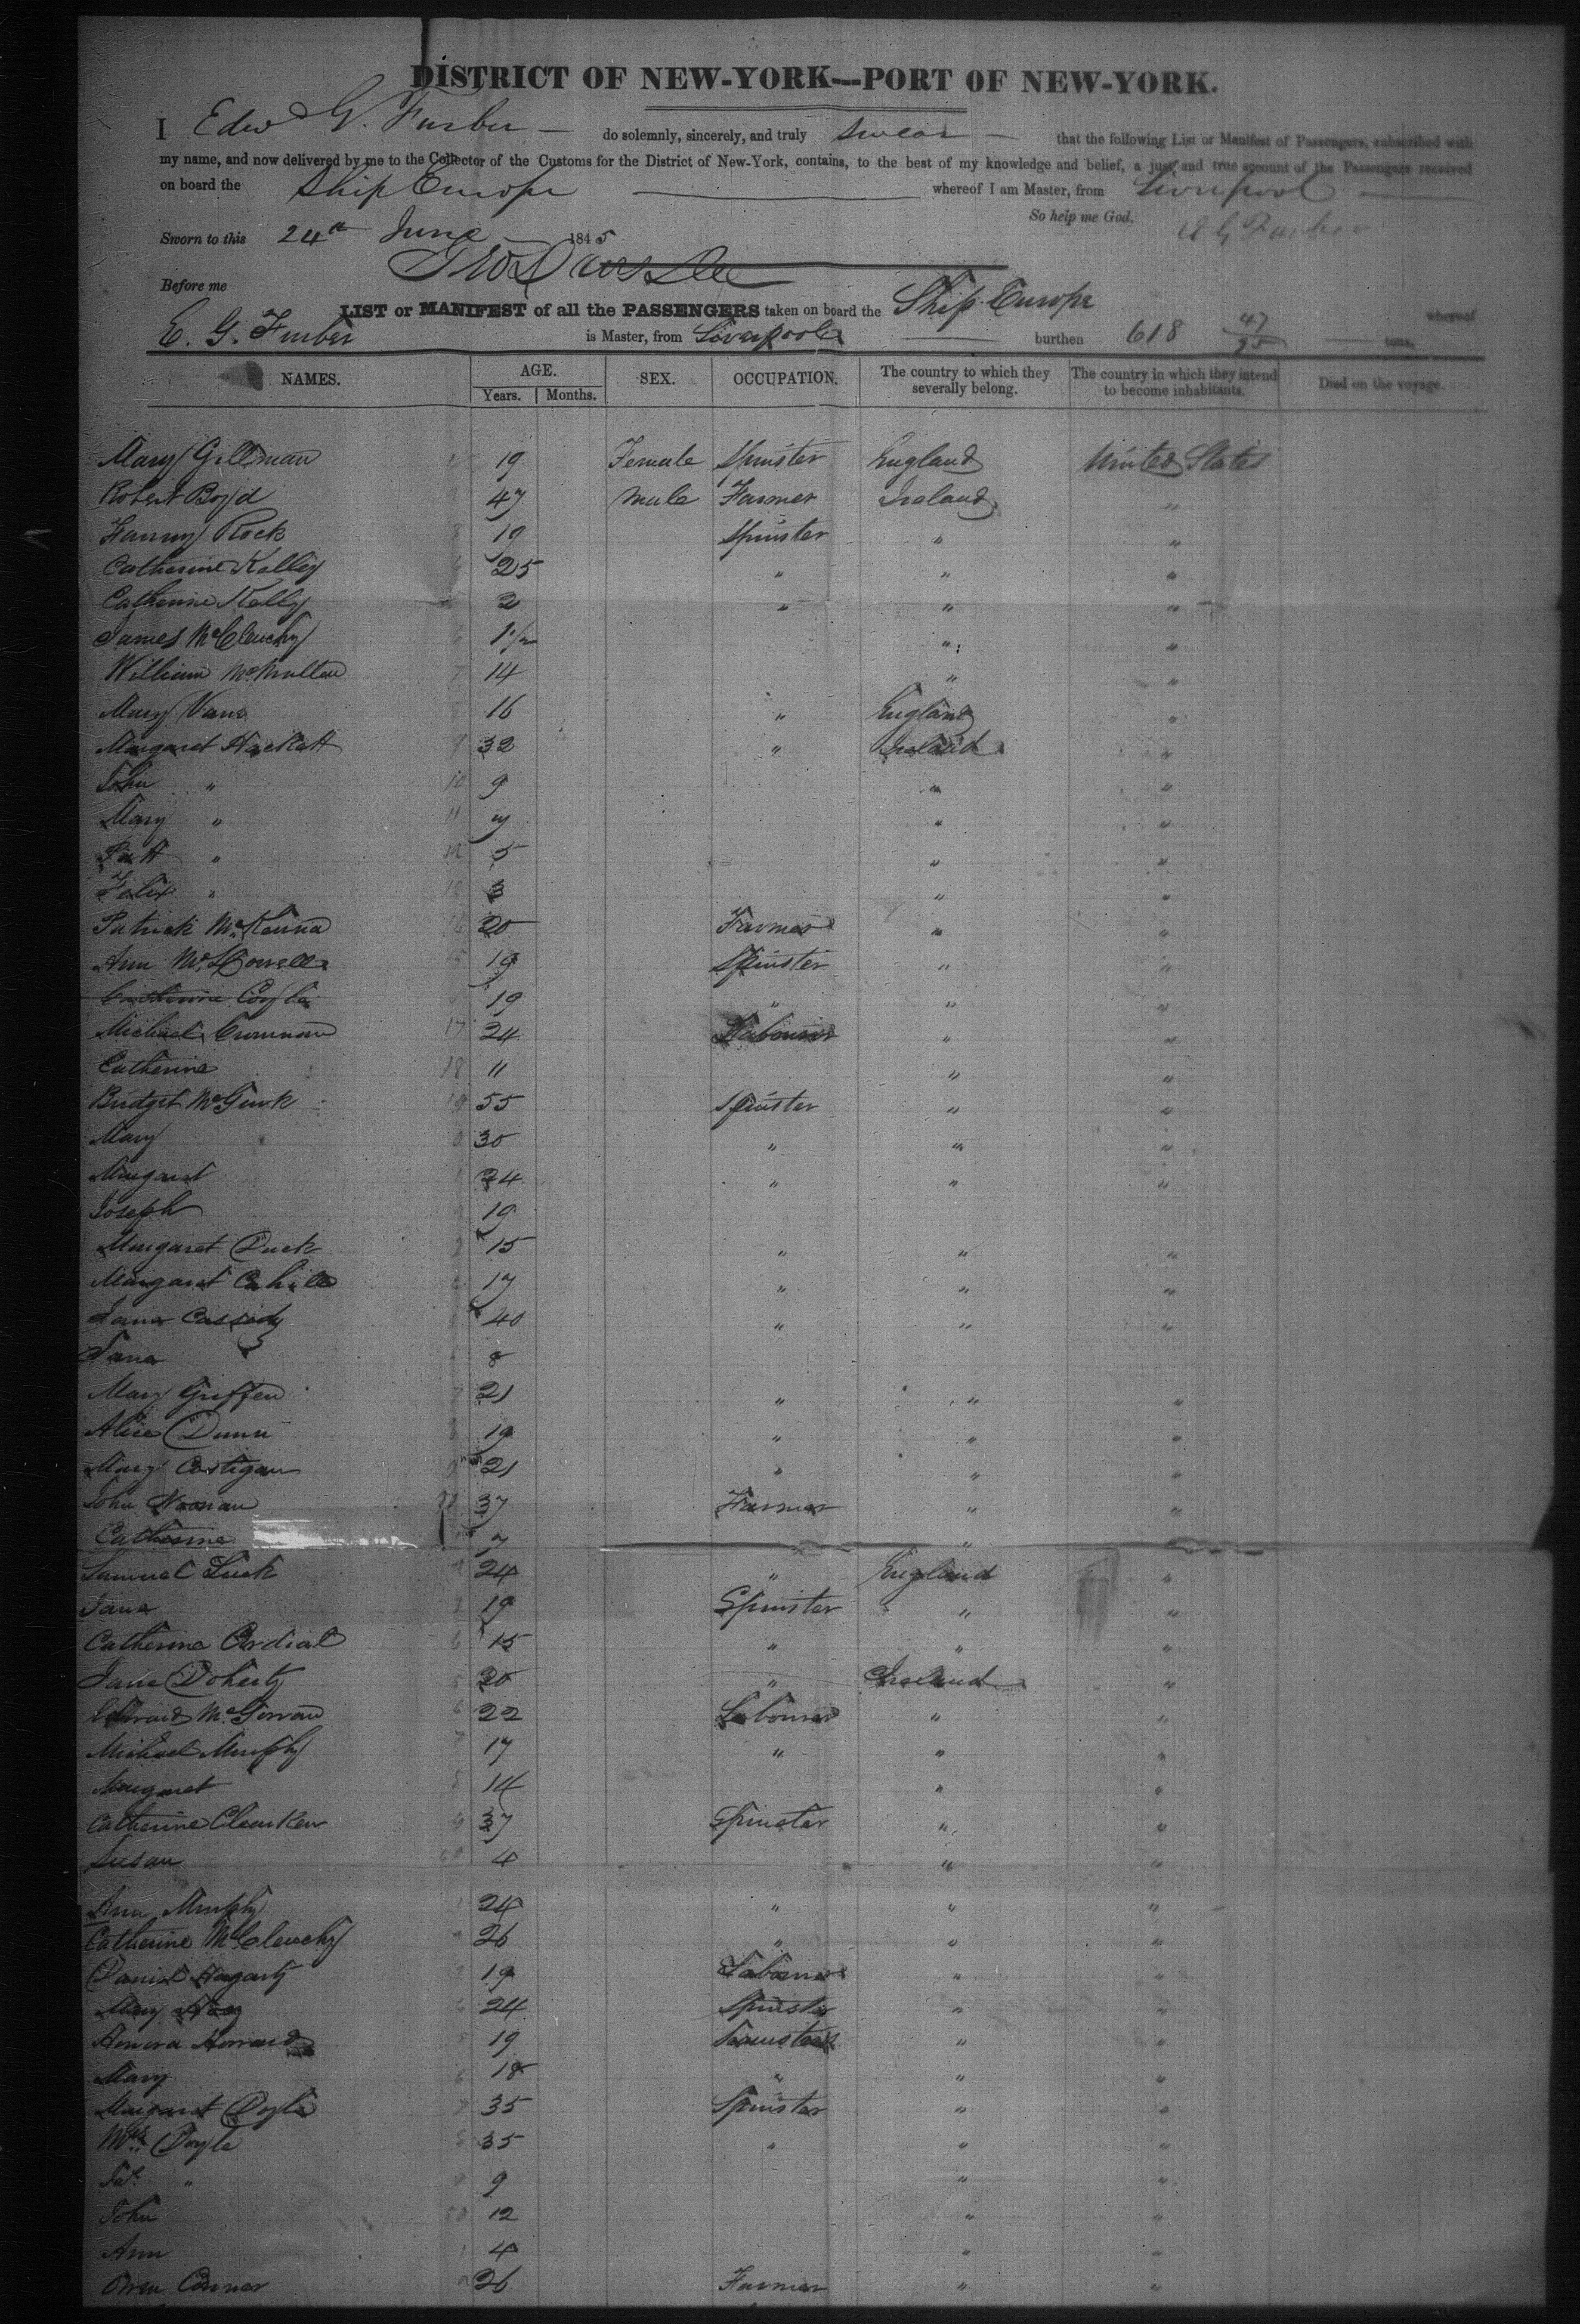 DISTRICT OF NEW-YORK---PORT OF NEW-YORK.
I Edw G. Furber do solemnly, sincerely, and truly swear that the following List or Manifest of Passengers, subscribed with
my name, and now delivered by me to the Collector of the Customs for the District of New-York, contains, to the best of my knowledge and belief, a just and true account of the Passengers received
on board the Ship Europe whereof I am Master, from Liverpool
So help me God.
Sworn to this 24th June 1845 E G Furber
Before me
LIST or MANIFEST of all the PASSENGERS taken on board the Ship Europe whereof
E. G. Furber is Master, from Liverpool burthen 618 47/95 tons.
NAMES. AGE. SEX. OCCUPATION. The country to which they severally belong. The country in which they intend to become inhabitants. Died on the voyage.
Years. Months.
Mary Gillman 19 Female Spinster England United States
Robert Boyd 47 male Farmer Ireland "
Fanny Rock 19 Spinster " "
Catherine Kelly 25 " " "
Catherine Kelly 2 " " "
James McCleuchy 1 1/2 " "
William McMullen 14 7 " "
Mary Vane 16 " England "
Margaret Hackett 9 32 " Ireland "
John " 10 9 " "
Mary " 11 7 " "
Patt " 12 5 " "
Felix " 13 3 " "
Patrick McKenna 20 Farmer " "
Ann 15 19 Spinster " "
Catherine Coyle 19 " " "
Michael 17 24 Labourer " "
Catherine 18 11 " "
Bridget McGurk 19 55 Spinster " "
Mary 30 " " "
Margaret 24 " " "
Joseph 19
Margaret Duck 15 " " "
Margaret Cahill 17 " " "
Jane Cassidy 40 " " "
Jane 8
Mary Griffen 21 " " "
Alice Dunn 19 " " "
Mary Costigan 21 " " "
John Noonan 37 Farmer " "
Catherine 7 "
Samuel Luck 24 " England "
Jane 19 Spinster " "
Catherine Cordial 15 " " "
Jane Doherty 20 " Ireland "
Edward McGovran 22 Labourer " "
Michael Murphy 17 " " "
Margaret 14 " "
Catherine 37 Spinster " "
Susan 4 " "
Ann Murphy 24 " " "
Catherine McCleuchy 26 " " "
Daniel Hagarty 19 Labourer " "
Mary 24 Spinster " "
Honora 19 " "
Mary 18 " " "
Margaret Doyle 35 Spinster " "
Mrs. Doyle 35 " " "
" 9 " "
John 12 " "
Ann 4 " "
Owen Connor 26 Farmer " "